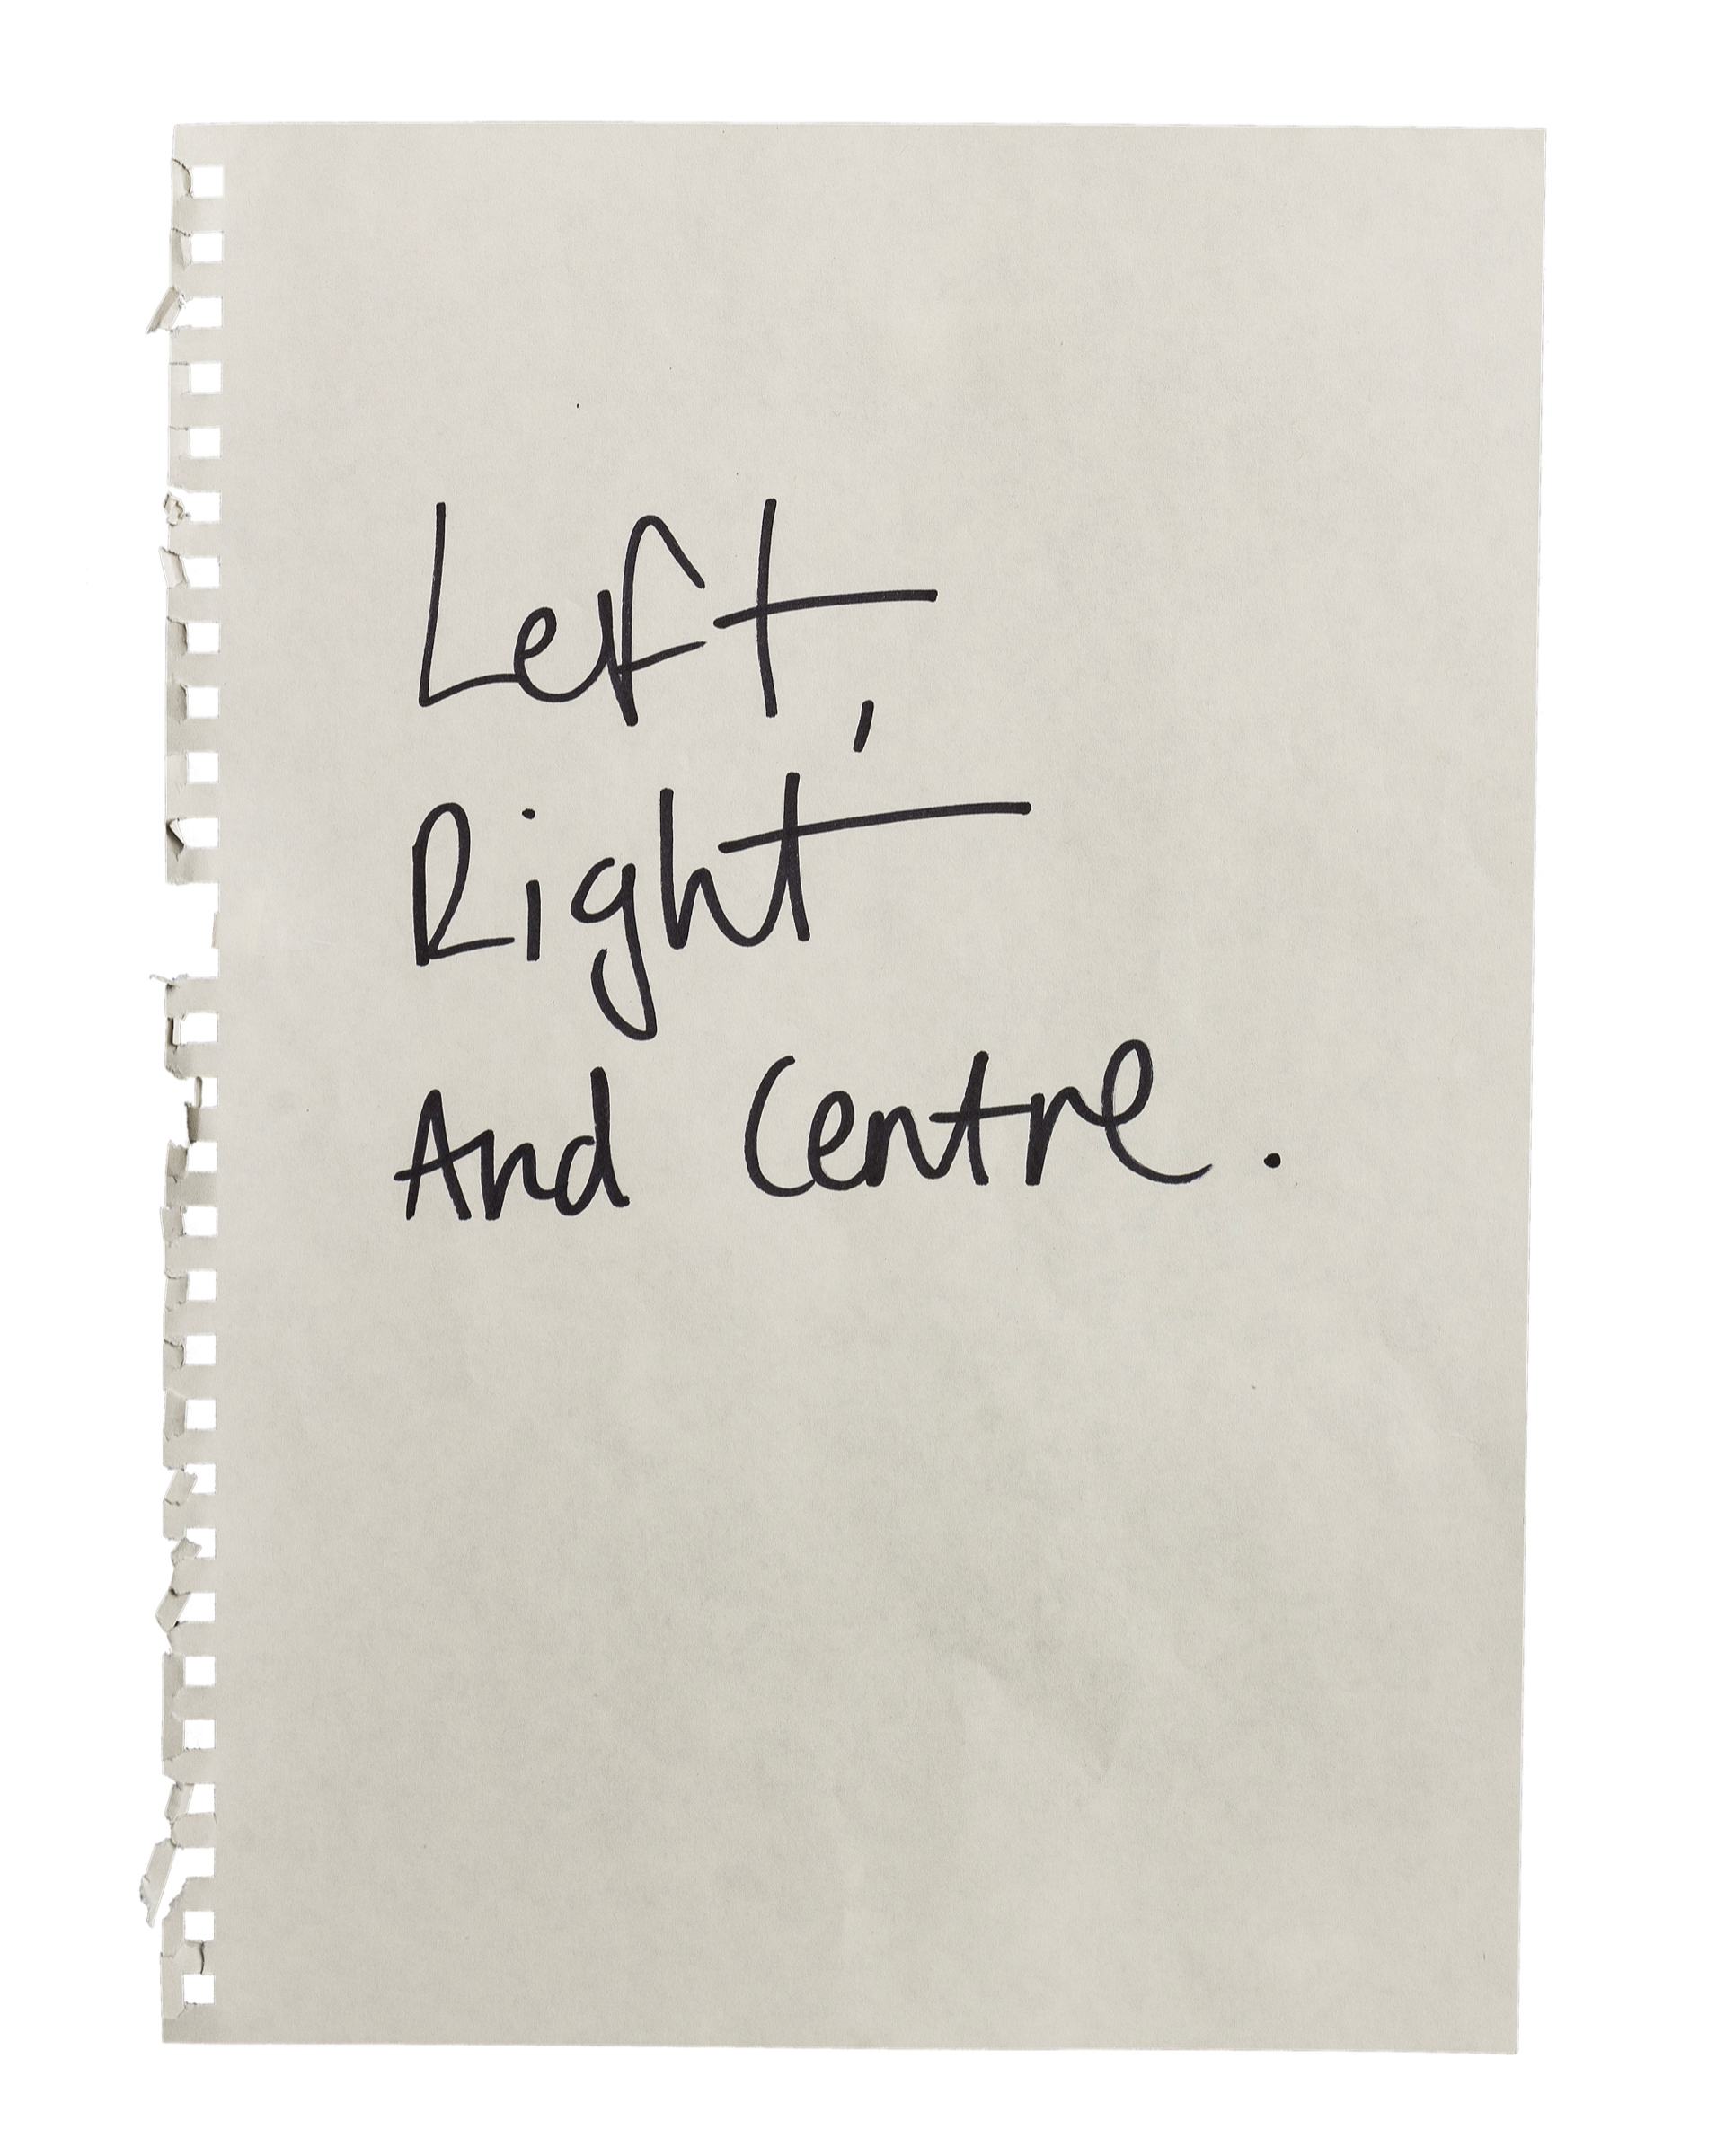 Left,
Right
And Centre.